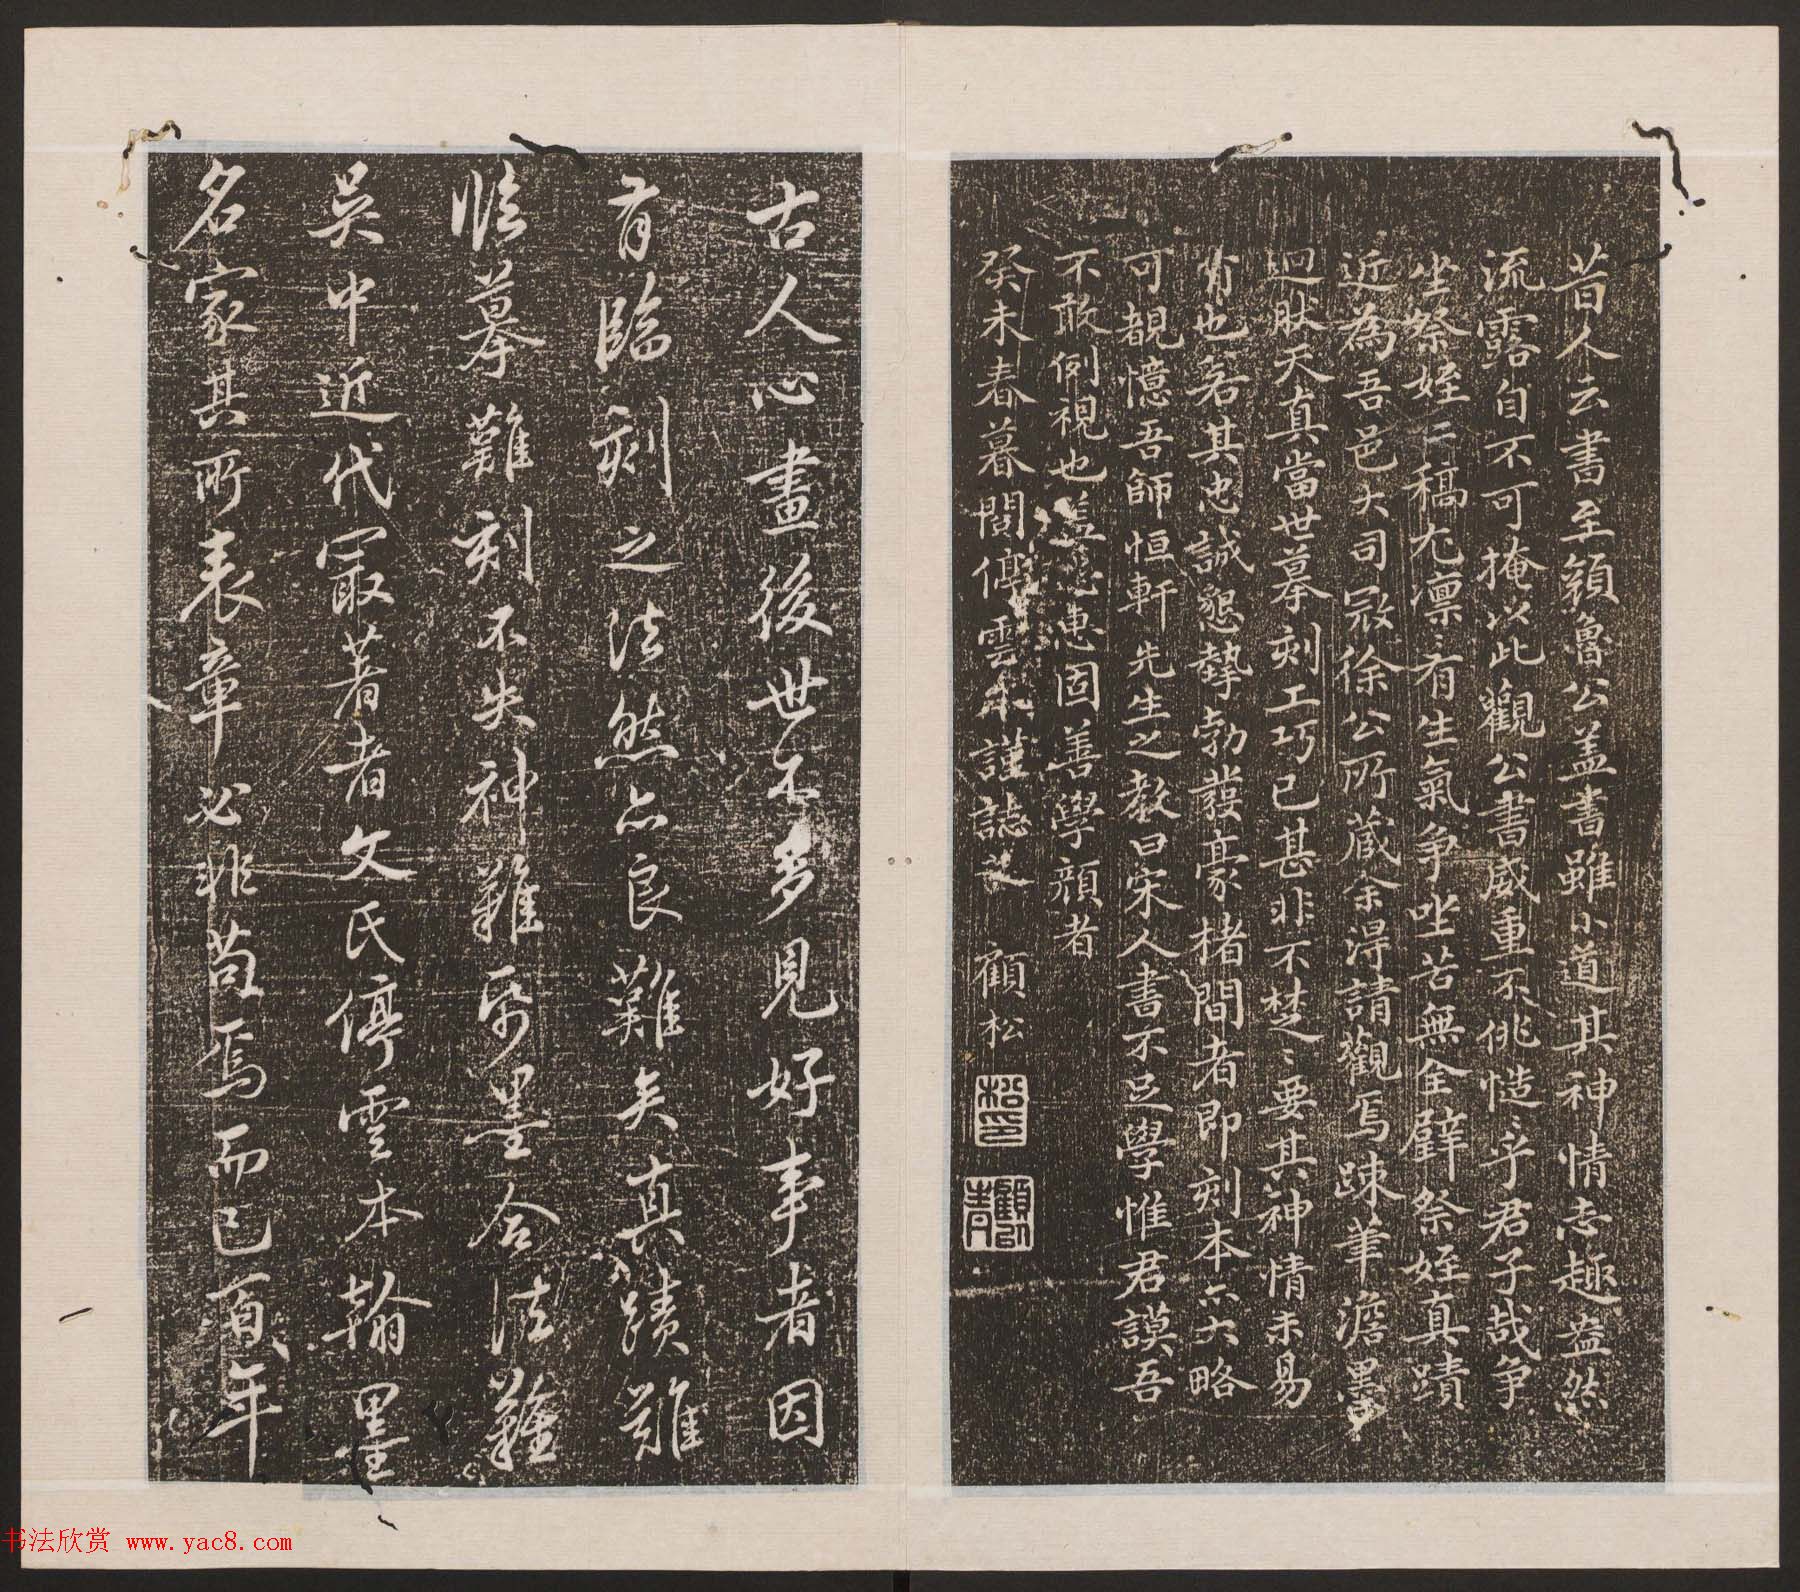 昔人云書至顏魯公盖書雖小道其神情志趣盎然
流露自不可掩以此觀公書威重不佻慥〻乎君子哉争
坐祭姪二稿尤凛〻有生氣争坐苦無全辟祭姪真蹟
近為吾邑大司冦徐公所藏余得請觀焉疎華澹墨
迥肰天真當世摹刻工巧已甚非不楚〻要其神情未易
肖也若其忠誠懇摯勃發豪楮間者即刻本亦大略
可覩憶吾師恒軒先生之教曰宋人書不足學惟君謨吾
不敢例視也盖 患因善學顔者
癸未春暮閱停雲本謹誌之 顧松
松印
顧
古人心畫後世不多見好事者因
有臨刻之法然亦良難矣真蹟難
臨摹難刻不失神難紙墨合法難
吳中近代冣著者文氏停雲本翰墨
名家其所表章必非苟焉而已百年
书法欣赏 www.yac8.com